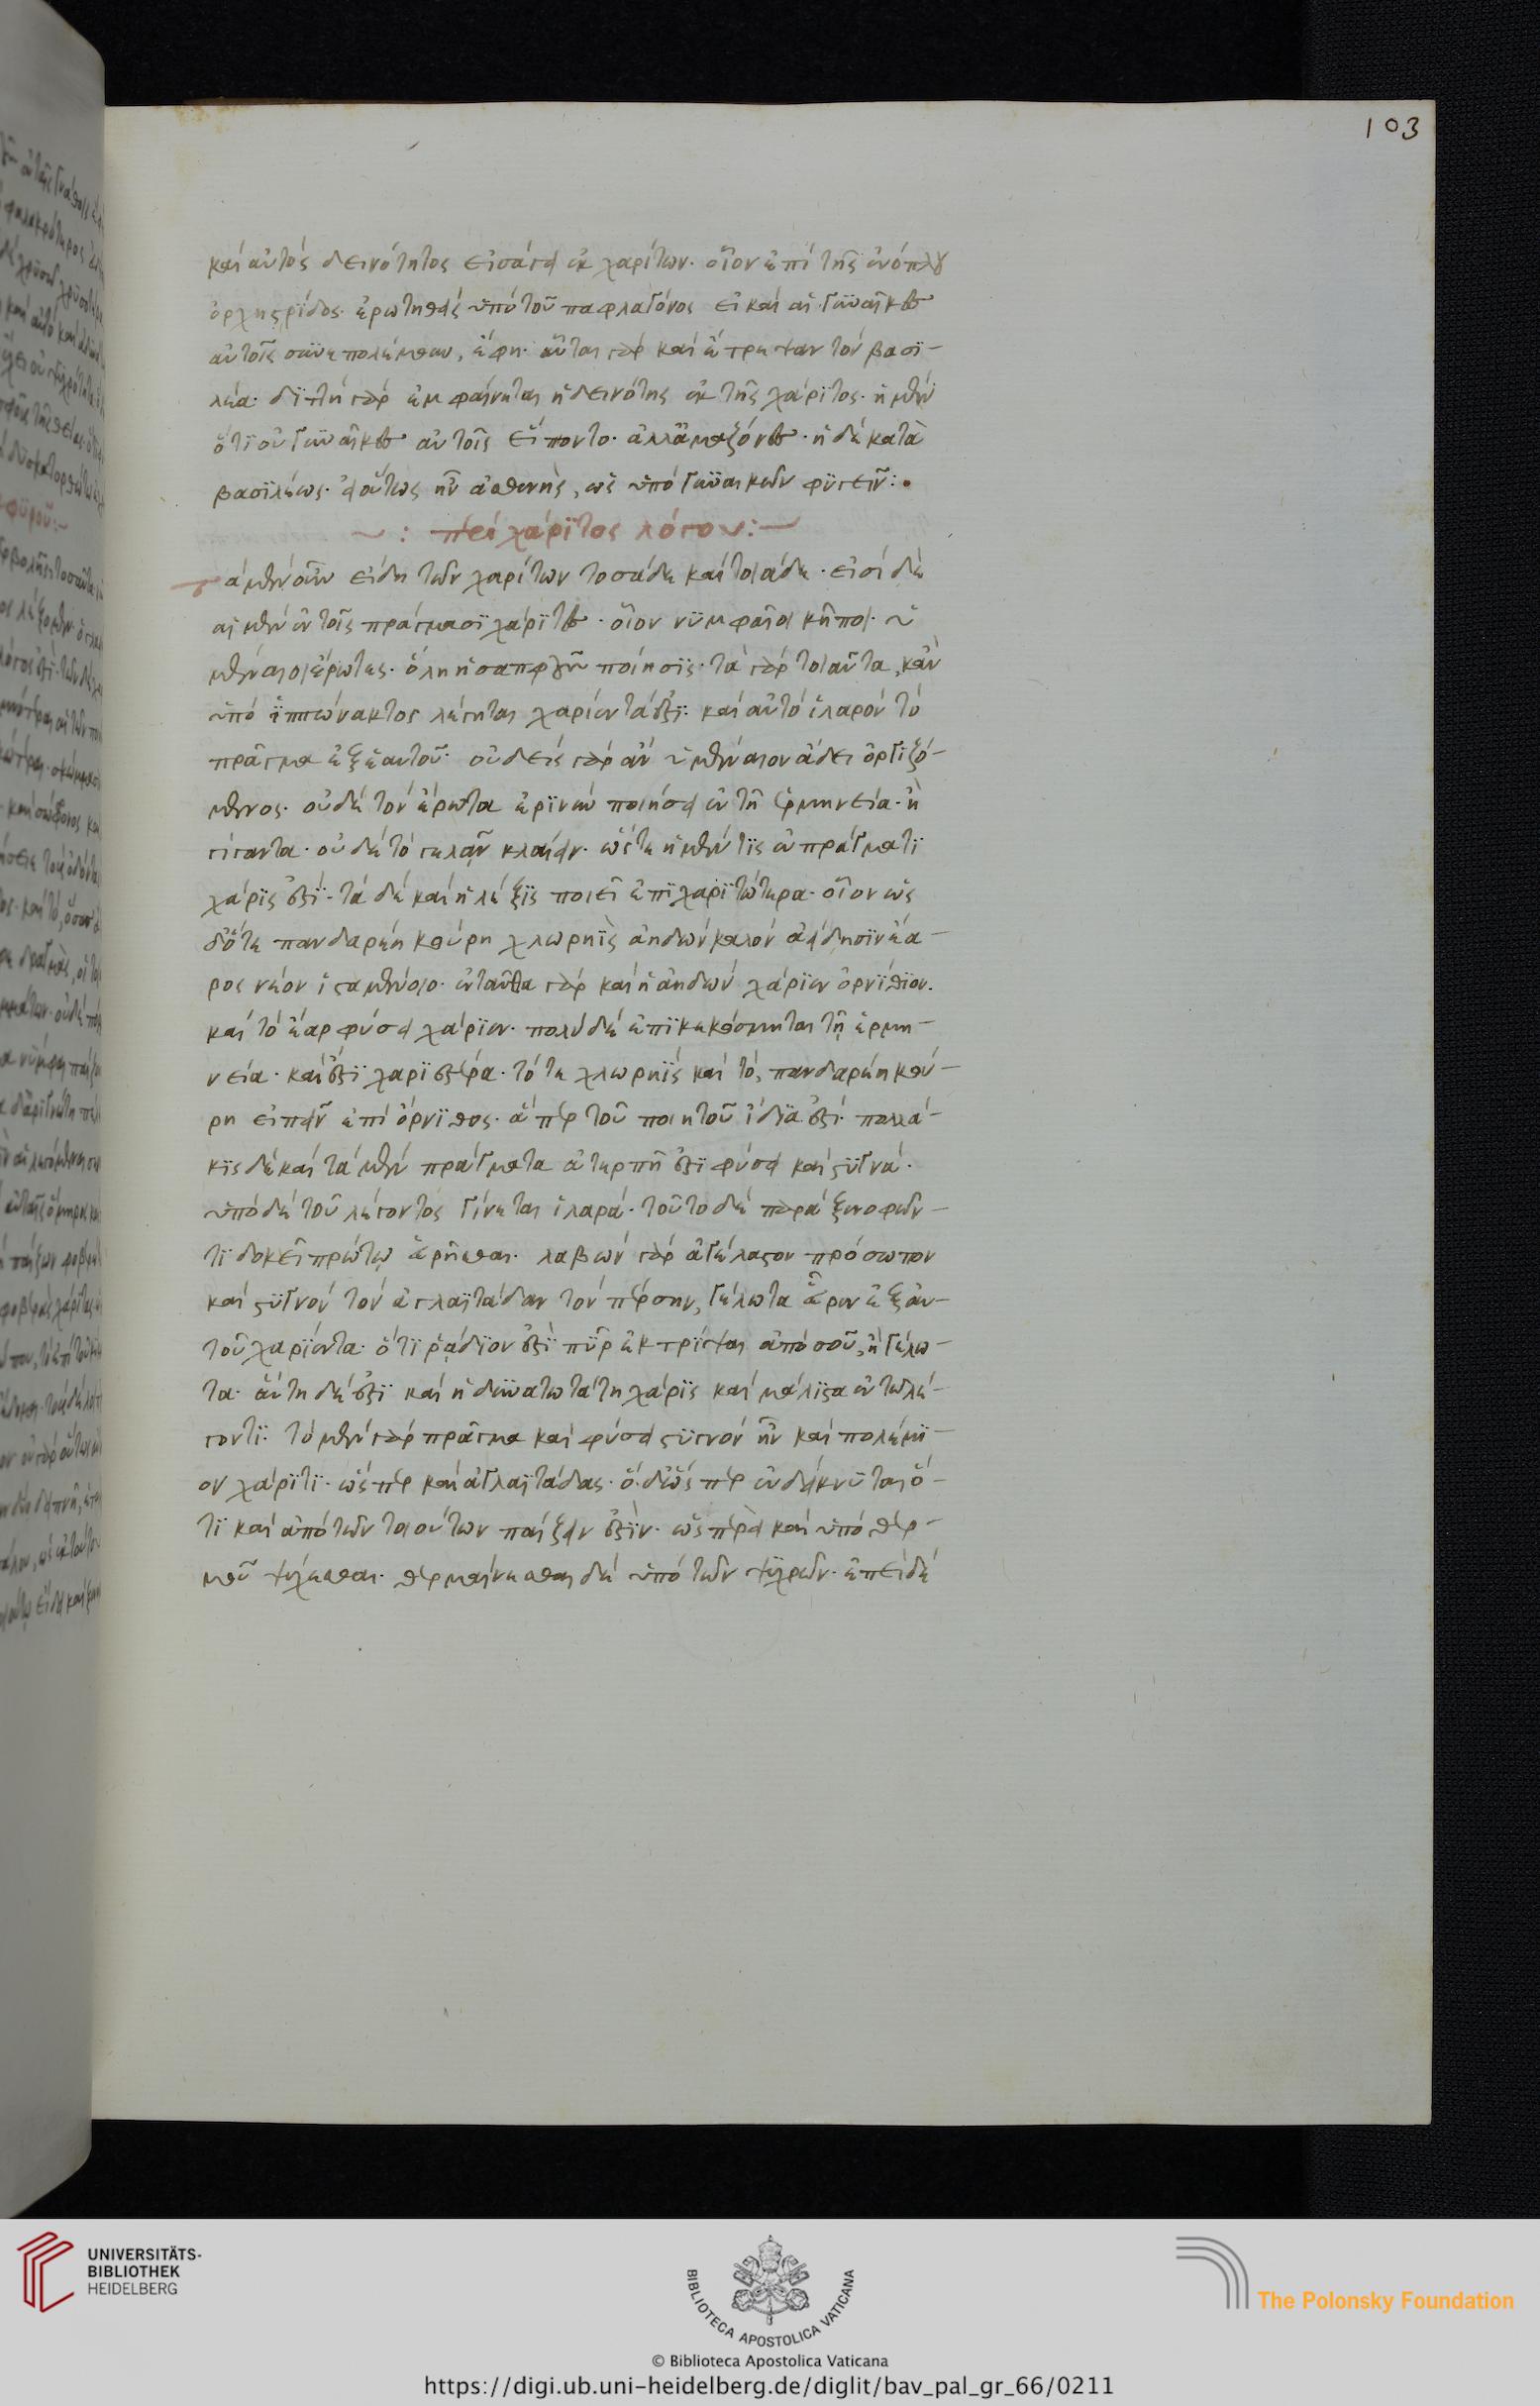 103
καὶ αὐτὸς δεινότητος εἰσάγει ἐκ χαρίτων· οἷον ἐπὶ τῆς ἐνόπλου
ὀρχηστρίδος· ἐρωτηθεὶς ὑπὸ τοῦ παφλαγόνος εἰ καὶ αἱ γυναῖκες
αὐτοῖς συνεπολέμουν, ἔφη· αὗται γὰρ καὶ ἔτρεψαν τὸν βασϊ-
λέα· διττὴ γὰρ ἐμφαίνεται ἡ δεινότης ἐκ τῆς χάριτος· ἡ μὲν
ὅτι οὐ γυναῖκες αὐτοῖς εἵποντο· ἀλλ' ἀμαζόνες· ἡ δὲ κατὰ
βασιλέως· εἰ οὕτως ἦν ἀσθενὴς, ὡς ὑπὸ γυναικῶν φυγεῖν:·
~ : περὶ χάριτος λόγου:—
τὰ μὲν οὖν εἴδη τῶν χαρίτων τοσάδε καὶ τοιάδε· εἰσὶ δὲ
αἱ μὲν ἐν τοῖς πράγμασι χάριτες· οἷον νυμφαῖοι κῆποι· ὑ
μέναιοι ἔρωτες· ὅλη ἡ σαπφοῦς ποίησις· τὰ γὰρ τοιαῦτα, κἂν
ὑπὸ ἱππώνακτος λέγηται χαρίεντά ἐστι· καὶ αὐτὸ ἱλαρὸν τὸ
πρᾶγμα ἐξ ἑαυτοῦ· οὐδεὶς γὰρ ἂν ὑμέναιον ἄδει ὀργιζό-
μενος· οὐδὲ τὸν ἔρωτα ἐρινὺν ποιήσει ἐν τῇ ἑρμηνεία· ἢ
γίγαντα· οὐδὲ τὸ γελᾶν κλαίειν· ὥστε ἡ μέν τις ἐν πράγματι
χάρις ἐστί· τὰ δὲ καὶ ἡ λέξις ποιεῖ ἐπιχαριτώτερα· οἷον ὡς
δ' ὅτε πανδαρέη κούρη χλωρηῒς ἀηδὼν καλὸν ἀείδησιν ἔα-
ρος νέον ἱσταμένοιο· ἐνταῦθα γὰρ καὶ ἡ ἀηδὼν χάριεν ὀρνίθιον.
καὶ τὸ ἔαρ φύσει χάριεν· πολὺ δὲ ἐπικεκόσμηται τῇ ἑρμη-
νεία· καὶ ἔστι χαριέστερα· τό τε χλωρηῒς καὶ τὸ, πανδαρέη κού-
ρη εἰπεῖν ἐπὶ ὄρνιθος· ἅπερ τοῦ ποιητοῦ ἴδια ἐστί· πολλά-
κις δὲ καὶ τὰ μὲν πράγματα ἀτερπῆ ἐστι φύσει καὶ στυγνά·
ὑπὸ δὲ τοῦ λέγοντος γίνεται ἱλαρά· τοῦτο δὲ παρὰ ξενοφῶν-
τι δοκεῖ πρώτῳ εὑρῆσθαι· λαβὼν γὰρ ἀγέλαστον πρόσωπον
καὶ στυγνὸν τὸν ἀγλαϊτάδαν τὸν πέρσην, γέλωτα εὗρεν ἐξ αὐ-
τοῦ χαρίεντα· ὅτι ῥᾴδιον ἐστὶ πῦρ ἐκτρίψαι ἀπὸ σοῦ, ἢ γέλω-
τα· αὕτη δέ ἐστι καὶ ἡ δυνατωτάτη χάρις καὶ μάλιστα ἐν τῶ λέ-
γοντι· τὸ μὲν γὰρ πρᾶγμα καὶ φύσει στυγνὸν ἦν καὶ πολέμι-
ον χάριτι· ὥσπερ καὶ ἀγλαϊτάδας· ὁ δ' ὥσπερ ἐνδείκνυται ὅ-
τι καὶ ἀπὸ τῶν τοιούτων παίζειν ἐστίν· ὡσπερεὶ καὶ ὑπὸ θερ-
μοῦ ψύχεσθαι· θερμαίνεσθαι δὲ ὑπὸ τῶν ψυχρῶν· ἐπεὶ δὲ
UNIVERSITÄTS-
BIBLIOTHEK
HEIDELBERG
BIBLIOTECA APOSTOLICA VATICANA
The Polonsky Foundation
© Biblioteca Apostolica Vaticana
https://digi.ub.uni-heidelberg.de/diglit/bav_pal_gr_66/0211